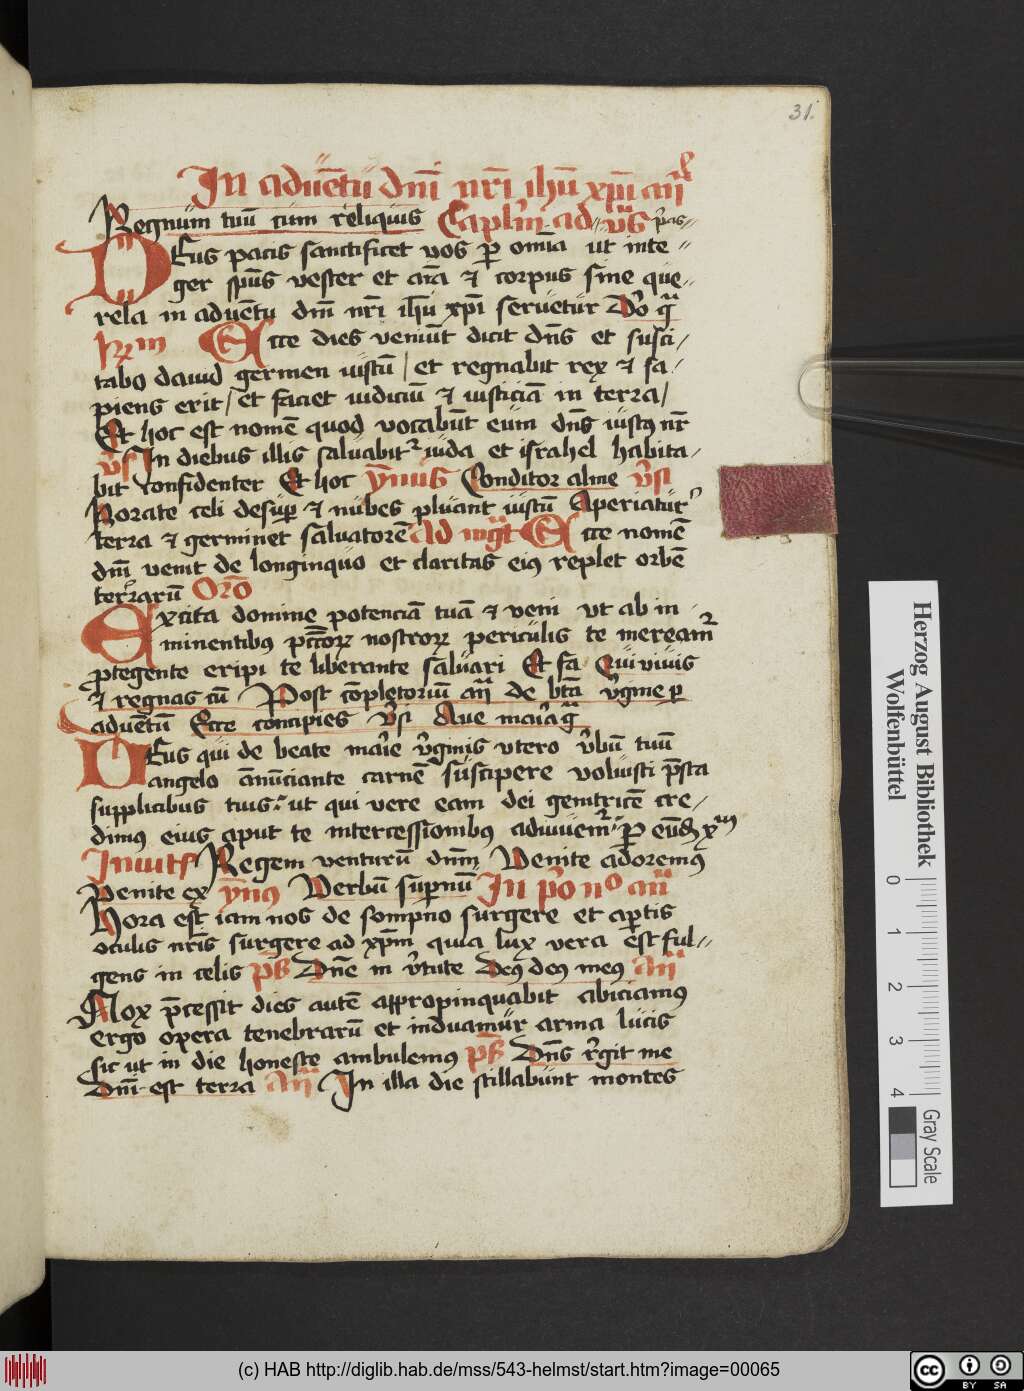 31.
In aduētū dnī nrī ihū xpī añ
Regnum tuū cum reliquis Caplm ad vs pͥas
DEus pacis sanctificet vos ꝑ omīa ut inte
ger spūs vester et aīa ⁊ corpus sine que
rela in aduētu dnī nrī ihū xpī seruetur Dō gͬa
Ecce dies veniūt dicit dns et susci
tabo dauid germen iustū / et regnabit rex ⁊ sa
piens erit / et faciet iudiciū ⁊ iusticiā in terra /
Et hoc est nomē quod vocabūt eum dns iustꝰ nr
vs In diebus illis saluabitᷣ iuda et israhel habita
bit confidenter Et hoc ȳmus Conditor alme vsi
Rorate celi desuꝑ ⁊ nubes pluant iustū Aperiaturᷣ
terra ⁊ germinet saluatorē Ad mgͣt Ecce nomē
dnī venit de longinquo et claritas eiꝰ replet orbē
terrarū Orō
Excita domine potenciā tuā ⁊ veni ut ab in
minentibꝰ pctōꝝ nostroꝝ periculis te mereamᷣ
ꝓtegente eripi te liberante saluari Et fa Qui viuis
⁊ regnas cū Post cōpletoriū añ de btā vgine ꝑ
aduētū Ecce concipies vsi Aue maria gͣ
DEus qui de beate marie vginis vtero vbū tuū
angelo ānūciante carnē suscipere voluisti psta
supplicibus tuis ut qui vere eam dei genitricē cre
dimꝰ eius aput te intercessionibꝰ adiuuemᷣ ꝑ eūdē xpm
Inuit Regem venturū dnm Venite adoremꝰ
Venite ex ȳnꝰ Verbū suꝑnū In pͦ nͦ añ
Hora est iam nos de sompno surgere et aꝑtis
oculis nrīs surgere ad xpm quia lux vera est ful
gens in celis ps Dne in vtute Deꝰ deꝰ meꝰ añ
Nox pcessit dies autē appropinquabit abiciamꝰ
ergo opera tenebrarū et induamur arma lucis
sic ut in die honeste ambulemꝰ ps Dns rgit me
Dnī est terra añ In illa die stillabunt montes
Herzog August Bibliothek
Wolfenbüttel
0
1
2
3
4
Gray Scale
(c) HAB http://diglib.hab.de/mss/543-helmst/start.htm?image=00065
cc
BY SA